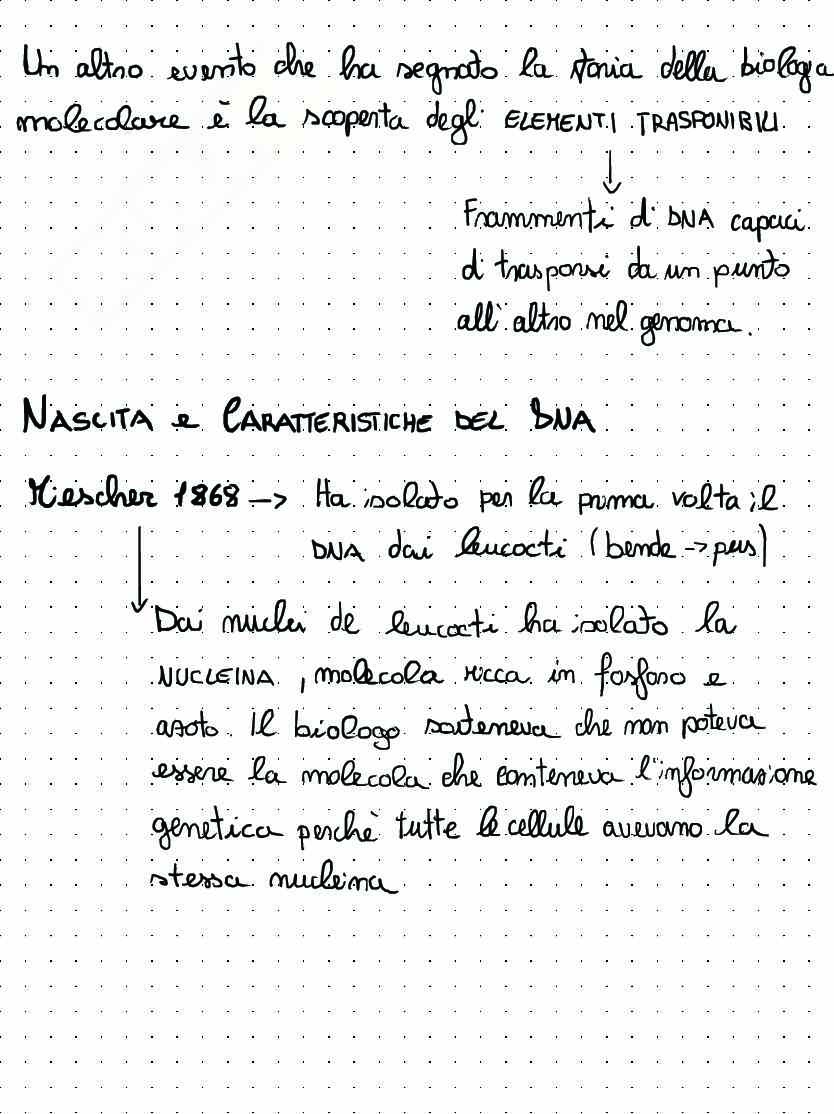 Un altro evento che ha segnato la storia della biologia
molecolare è la scoperta degli ELEMENTI TRASPONIBILI
↓
Frammenti di DNA capaci
di trasporsi da un punto
all'altro nel genoma.
NASCITA e CARATTERISTICHE DEL DNA
Miescher 1868 -> Ha isolato per la prima volta il
DNA dai leucociti (bende -> pus)
↓
Dai nuclei dei leucociti ha isolato la
NUCLEINA, molecola ricca in fosforo e
azoto. Il biologo sosteneva che non poteva
essere la molecola che conteneva l'informazione
genetica perchè tutte le cellule avevano la
stessa nucleina